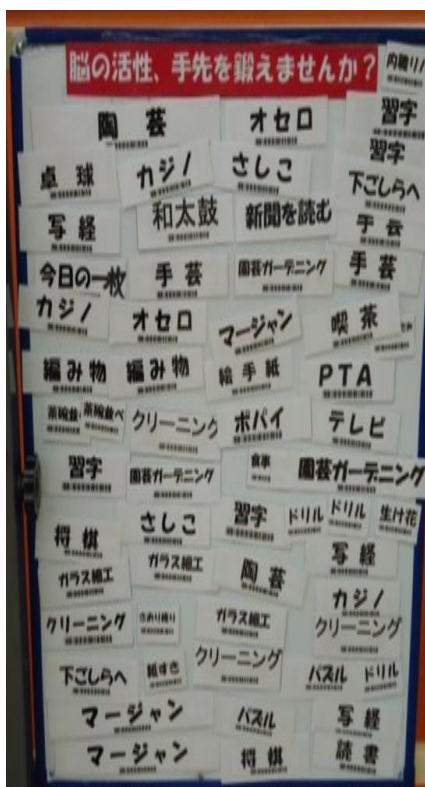 脳の活性、手先を鍛えませんか?
陶芸 オセロ 習字
習字
卓球 カジノ さしこ 下ごしらへ
写経 和太鼓 新聞を読む 手芸
今日の一枚 手芸 園芸ガーデニング 手芸
カジノ オセロ マージャン 喫茶
編み物 編み物 絵手紙 PTA
茶碗並 茶碗並べ クリーニング ポパイ テレビ
習字 園芸ガーデニング 食事 園芸ガーデニング
将棋 さしこ 習字 ドリル ドリル 生け花
ガラス細工 ガラス細工 陶芸 写経
カジノ
クリーニング さおり織り ガラス細工 クリーニング
下ごしらへ 紙すき クリーニング パズル ドリル
マージャン パズル 写経
マージャン 将棋 読書